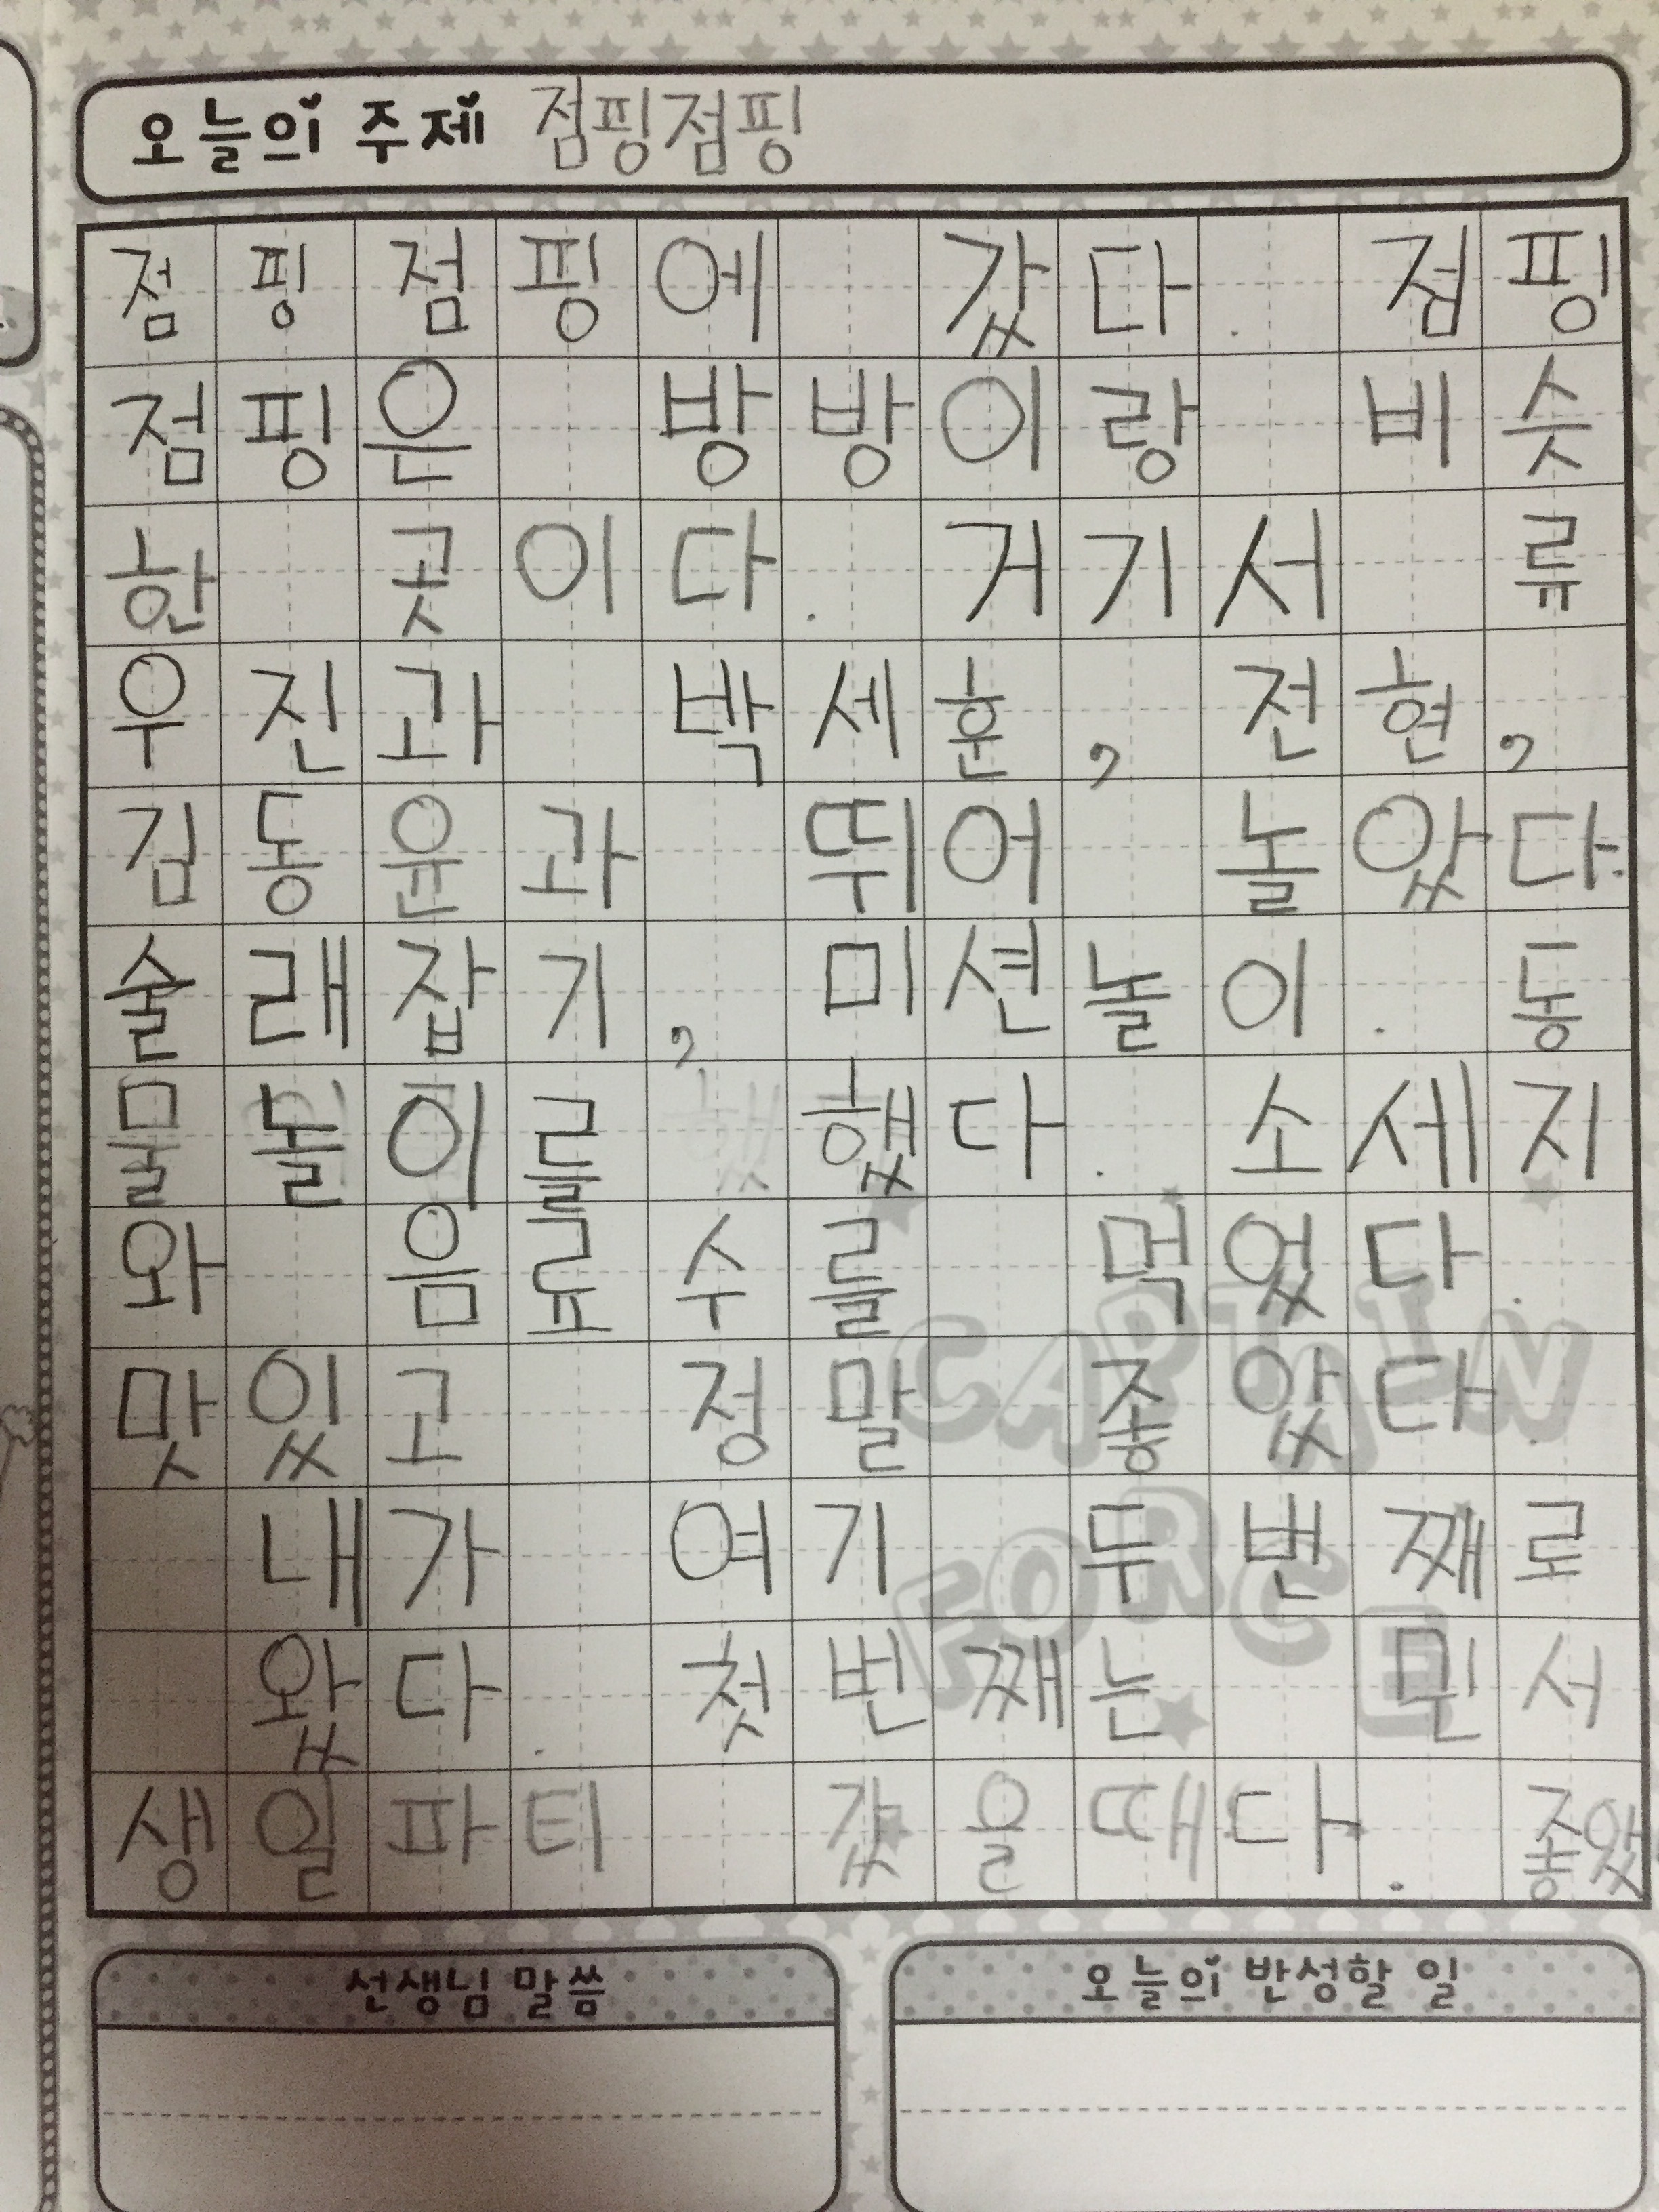 오늘의 주제 점핑점핑
점핑점핑에 갔다. 점핑
점핑은 방방이랑 비슷
한 곳이다. 거기서 류
우진과 박세훈, 전현,
김동윤과 뛰어 놀았다.
술래잡기, 미션놀이. 동
물놀이를 했다. 소세지
와 음료수를 먹었다.
맛있고 정말 좋았다.
내가 여기 두번째로
왔다. 첫번째는 민서
생일파티 갔을때다. 좋았
CAPTAIN
FORCE
선생님 말씀
오늘의 반성할 일